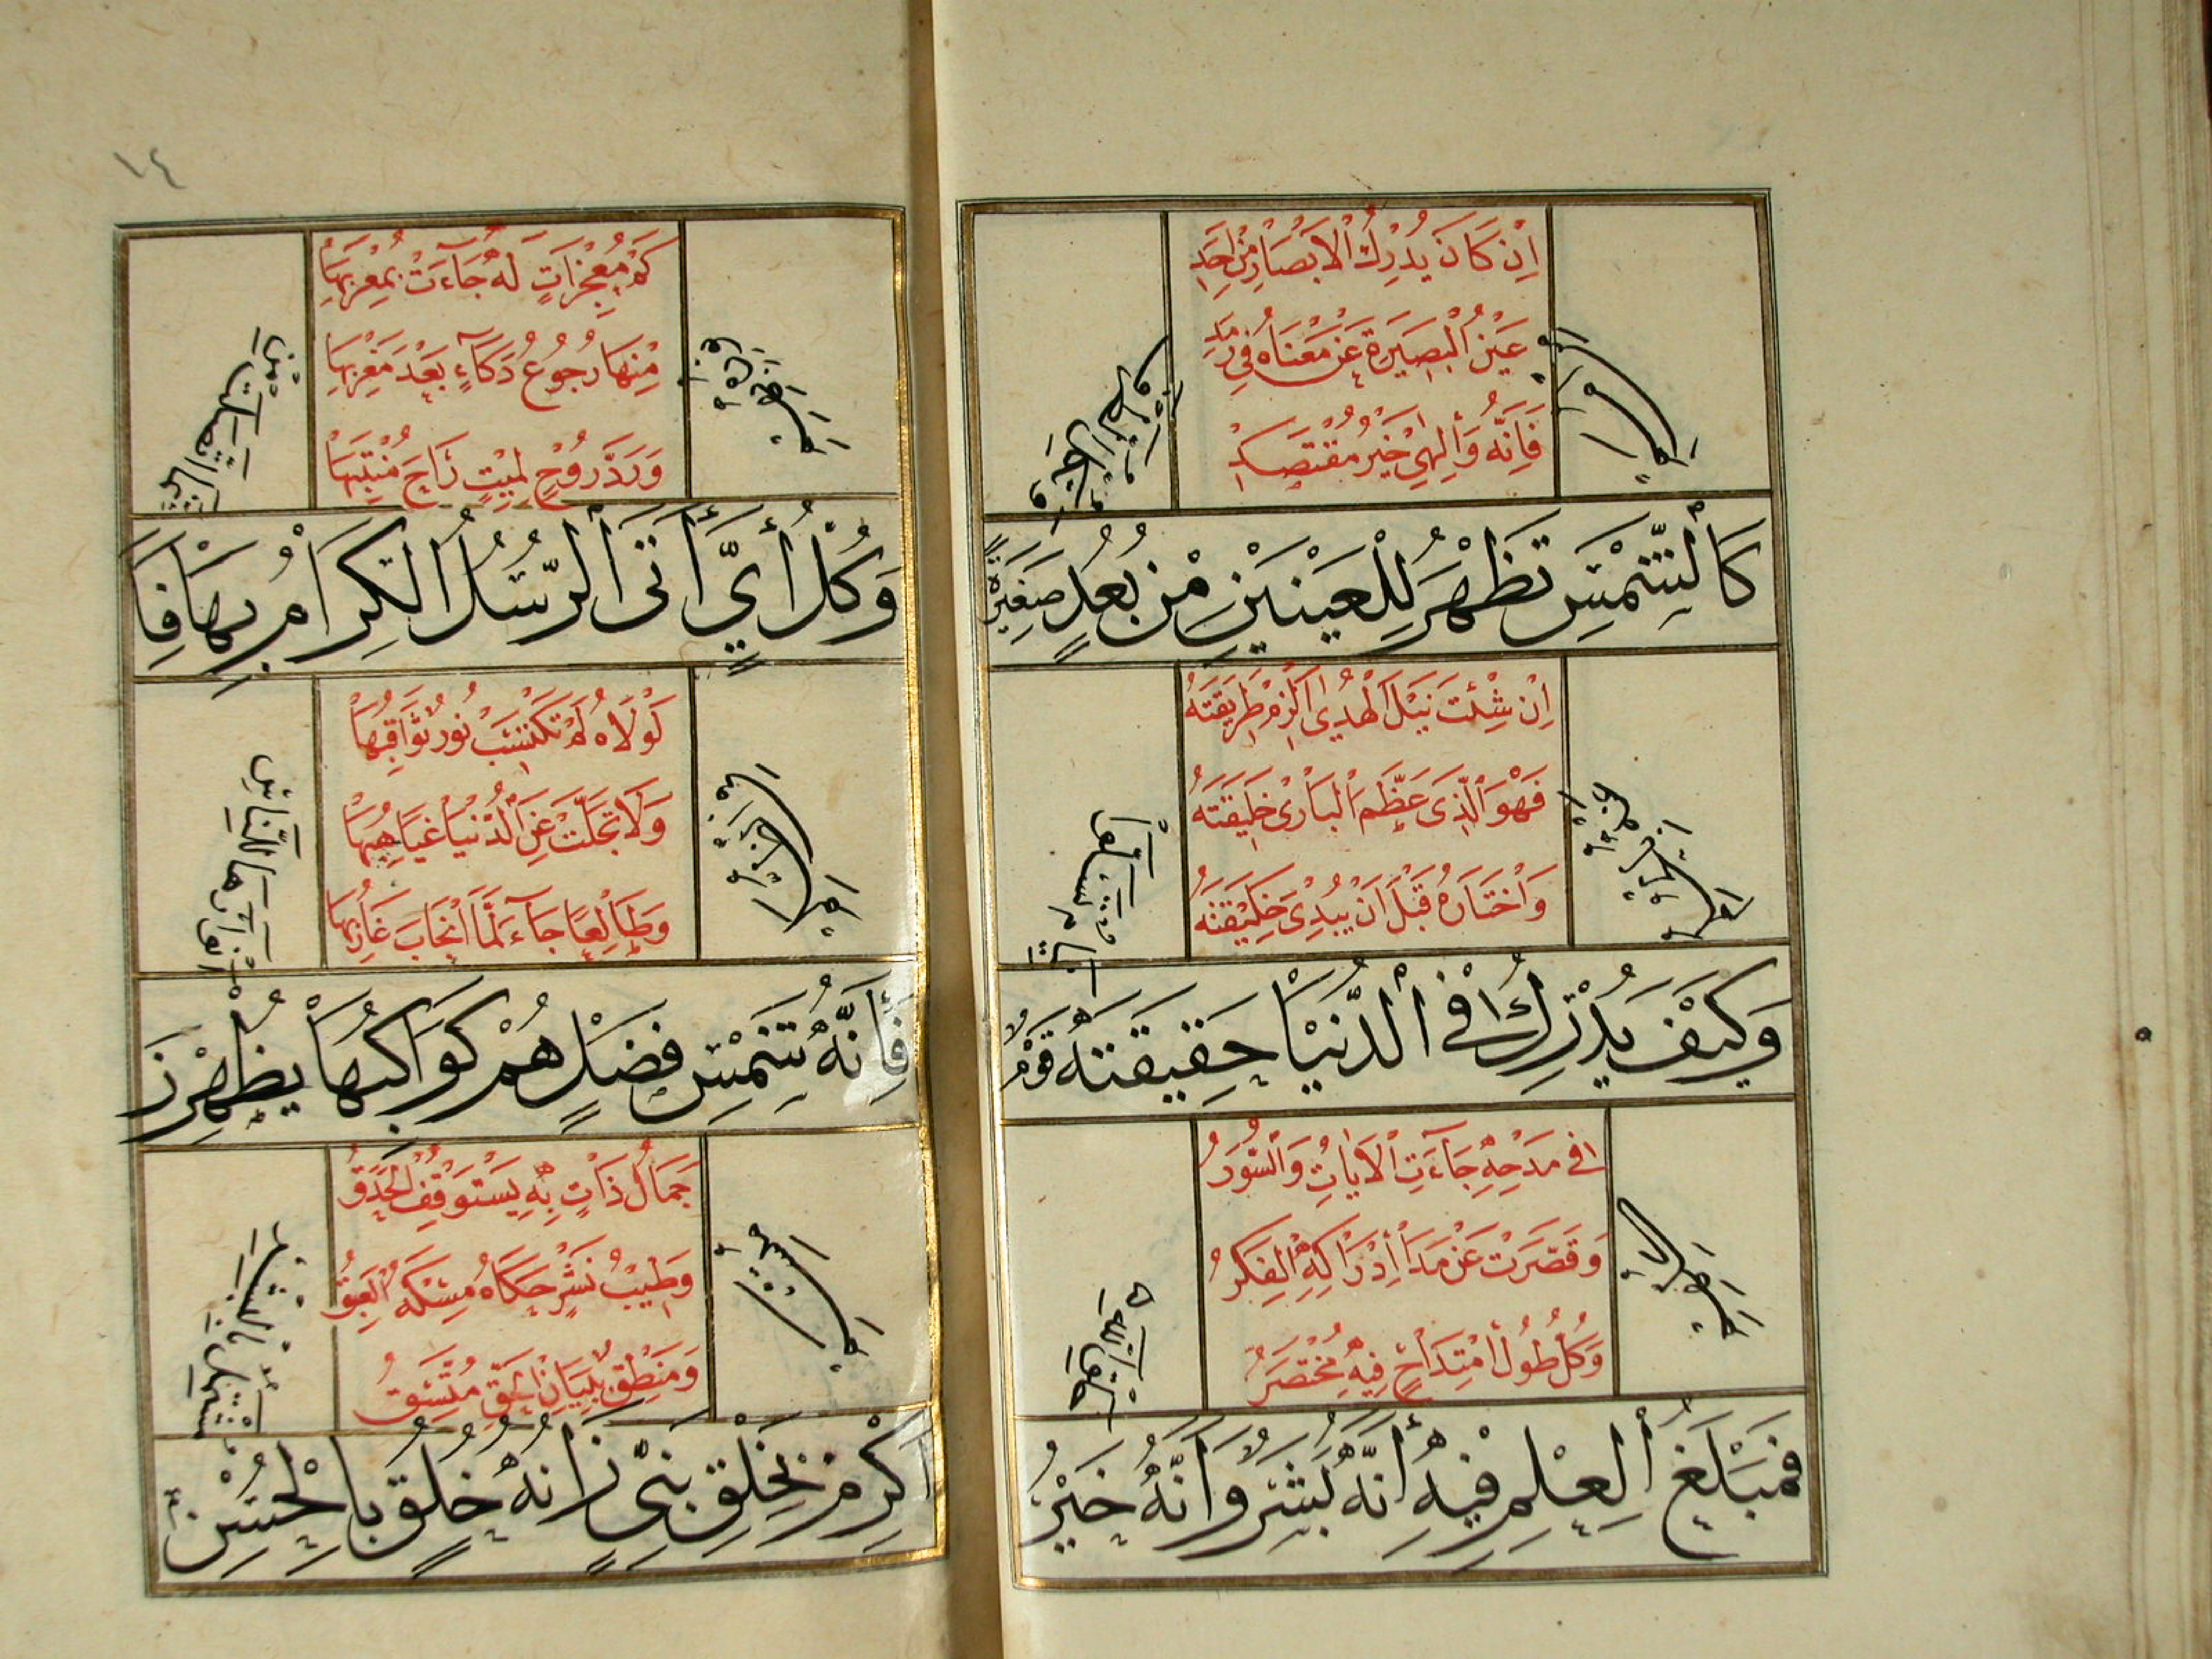 اِنْ كَانَ يُدْرِكُ الْاَبْصَارُ مِنْ اَحَدِ
عَيْنُ الْبَصِيرَةِ عَنْ مَعْنَاهُ فِي رَمَدِ
فَاِنَّهُ وَاِلٰهِي خَيْرُ مُقْتَصِدِ
كَالشَّمْسِ تَظْهَرُ لِلْعَيْنَيْنِ مِنْ بُعُدٍ صَغِيرَةً
وَتُكِلُّ الطَّرْفَ
مِنْ اَمَمِ
اِنْ شِئْتَ نَيْلَ الْهُدٰى الْزَمْ طَرِيقَتَهُ
فَهْوَ الَّذِي عَظَّمَ الْبَارِئْ خَلِيقَتَهُ
وَاخْتَارَهُ قَبْلَ اَنْ يُبْدِئْ خَلِيْقَتَهُ
وَكَيْفَ يُدْرِكُ فِي الدُّنْيَا حَقِيقَتَهُ قَوْمٌ
نِيَامٌ تَسَلَّوْا
عَنْهُ بِالْحُلُمِ
فِي مَدْحِهِ جَاءَتِ الْاٰيَاتُ وَالسُّوَرُ
وَقَصَّرَتْ عَنْ مَدَا اِدْرَاكِهِ الْفِكَرُ
وَكُلُّ طُولُ امْتِدَاحٍ فِيهِ مُخْتَصَرُ
فَمَبْلَغُ الْعِلْمِ فِيهِ اَنَّهُ بَشَرٌ وَاَنَّهُ خَيْرُ
خَلْقِ اللهِ
كُلِّهِمِ
١٤
كَمْ مُعْجِزَاتٍ لَهُ جَاءَتْ بِمُعْرِبِهَا
مِنْهَا رُجُوعُ ذُكَاءٍ بَعْدَ مَغْرِبِهَا
وَرَدَّ رُوْحٍ لِمَيْتٍ نَاحَ مُنْتَبِهَا
وَكُلُّ أَيٍّ أَتَى الرُّسُلُ الْكِرَامُ بِهَا فَا
نَّمَا اتَّصَلَتْ مِنْ
نُورِهِ بِهِمِ
لَوْلَاهُ لَمْ تَكْتَسِبْ نُورُ ثَوَاقِبُهَا
وَلَا تَجَلَّتْ عَنِ الدُّنْيَا غَيَاهِبُهَا
وَطَالِعًا جَاءَ لَمَّا انْجَابَ غَارِبُهَا
فَاِنَّهُ شَمْسُ فَضْلٍ هُمْ كَوَاكِبُهَا يُظْهِرْنَ
اَنْوَارَهَا لِلنَّاسِ
فِي الظُّلَمِ
جَمَالُ ذَاتٍ بِهِ يَسْتَوْقِفُ الْحَدَقُ
وَطِيبُ نَشْرٍ حَكَاهُ مِسْكَهُ الْعَبِقُ
وَمَنْطِقٌ لِبَيَانِ الْحَقِّ مُتَّسِقُ
اَكْرِمْ بِخَلْقِ نَبِيٍّ زَانَهُ خُلُقٌ بِالْحُسْنِ
مُشْتَمِلٍ بِالْبِشْرِ
مُتَّسِمِ